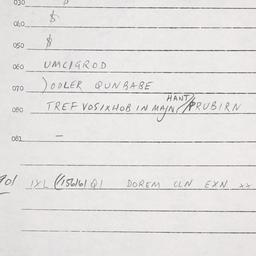 030
040 $
050 $
060 UMCIGROD
070 )ODLER QUNBABE
080 TREF VOSIXHOB IN MAJN HANT/PRUBIRN
081 –
901 IXL ((15616) Q1 DOREM CLN EXN XX